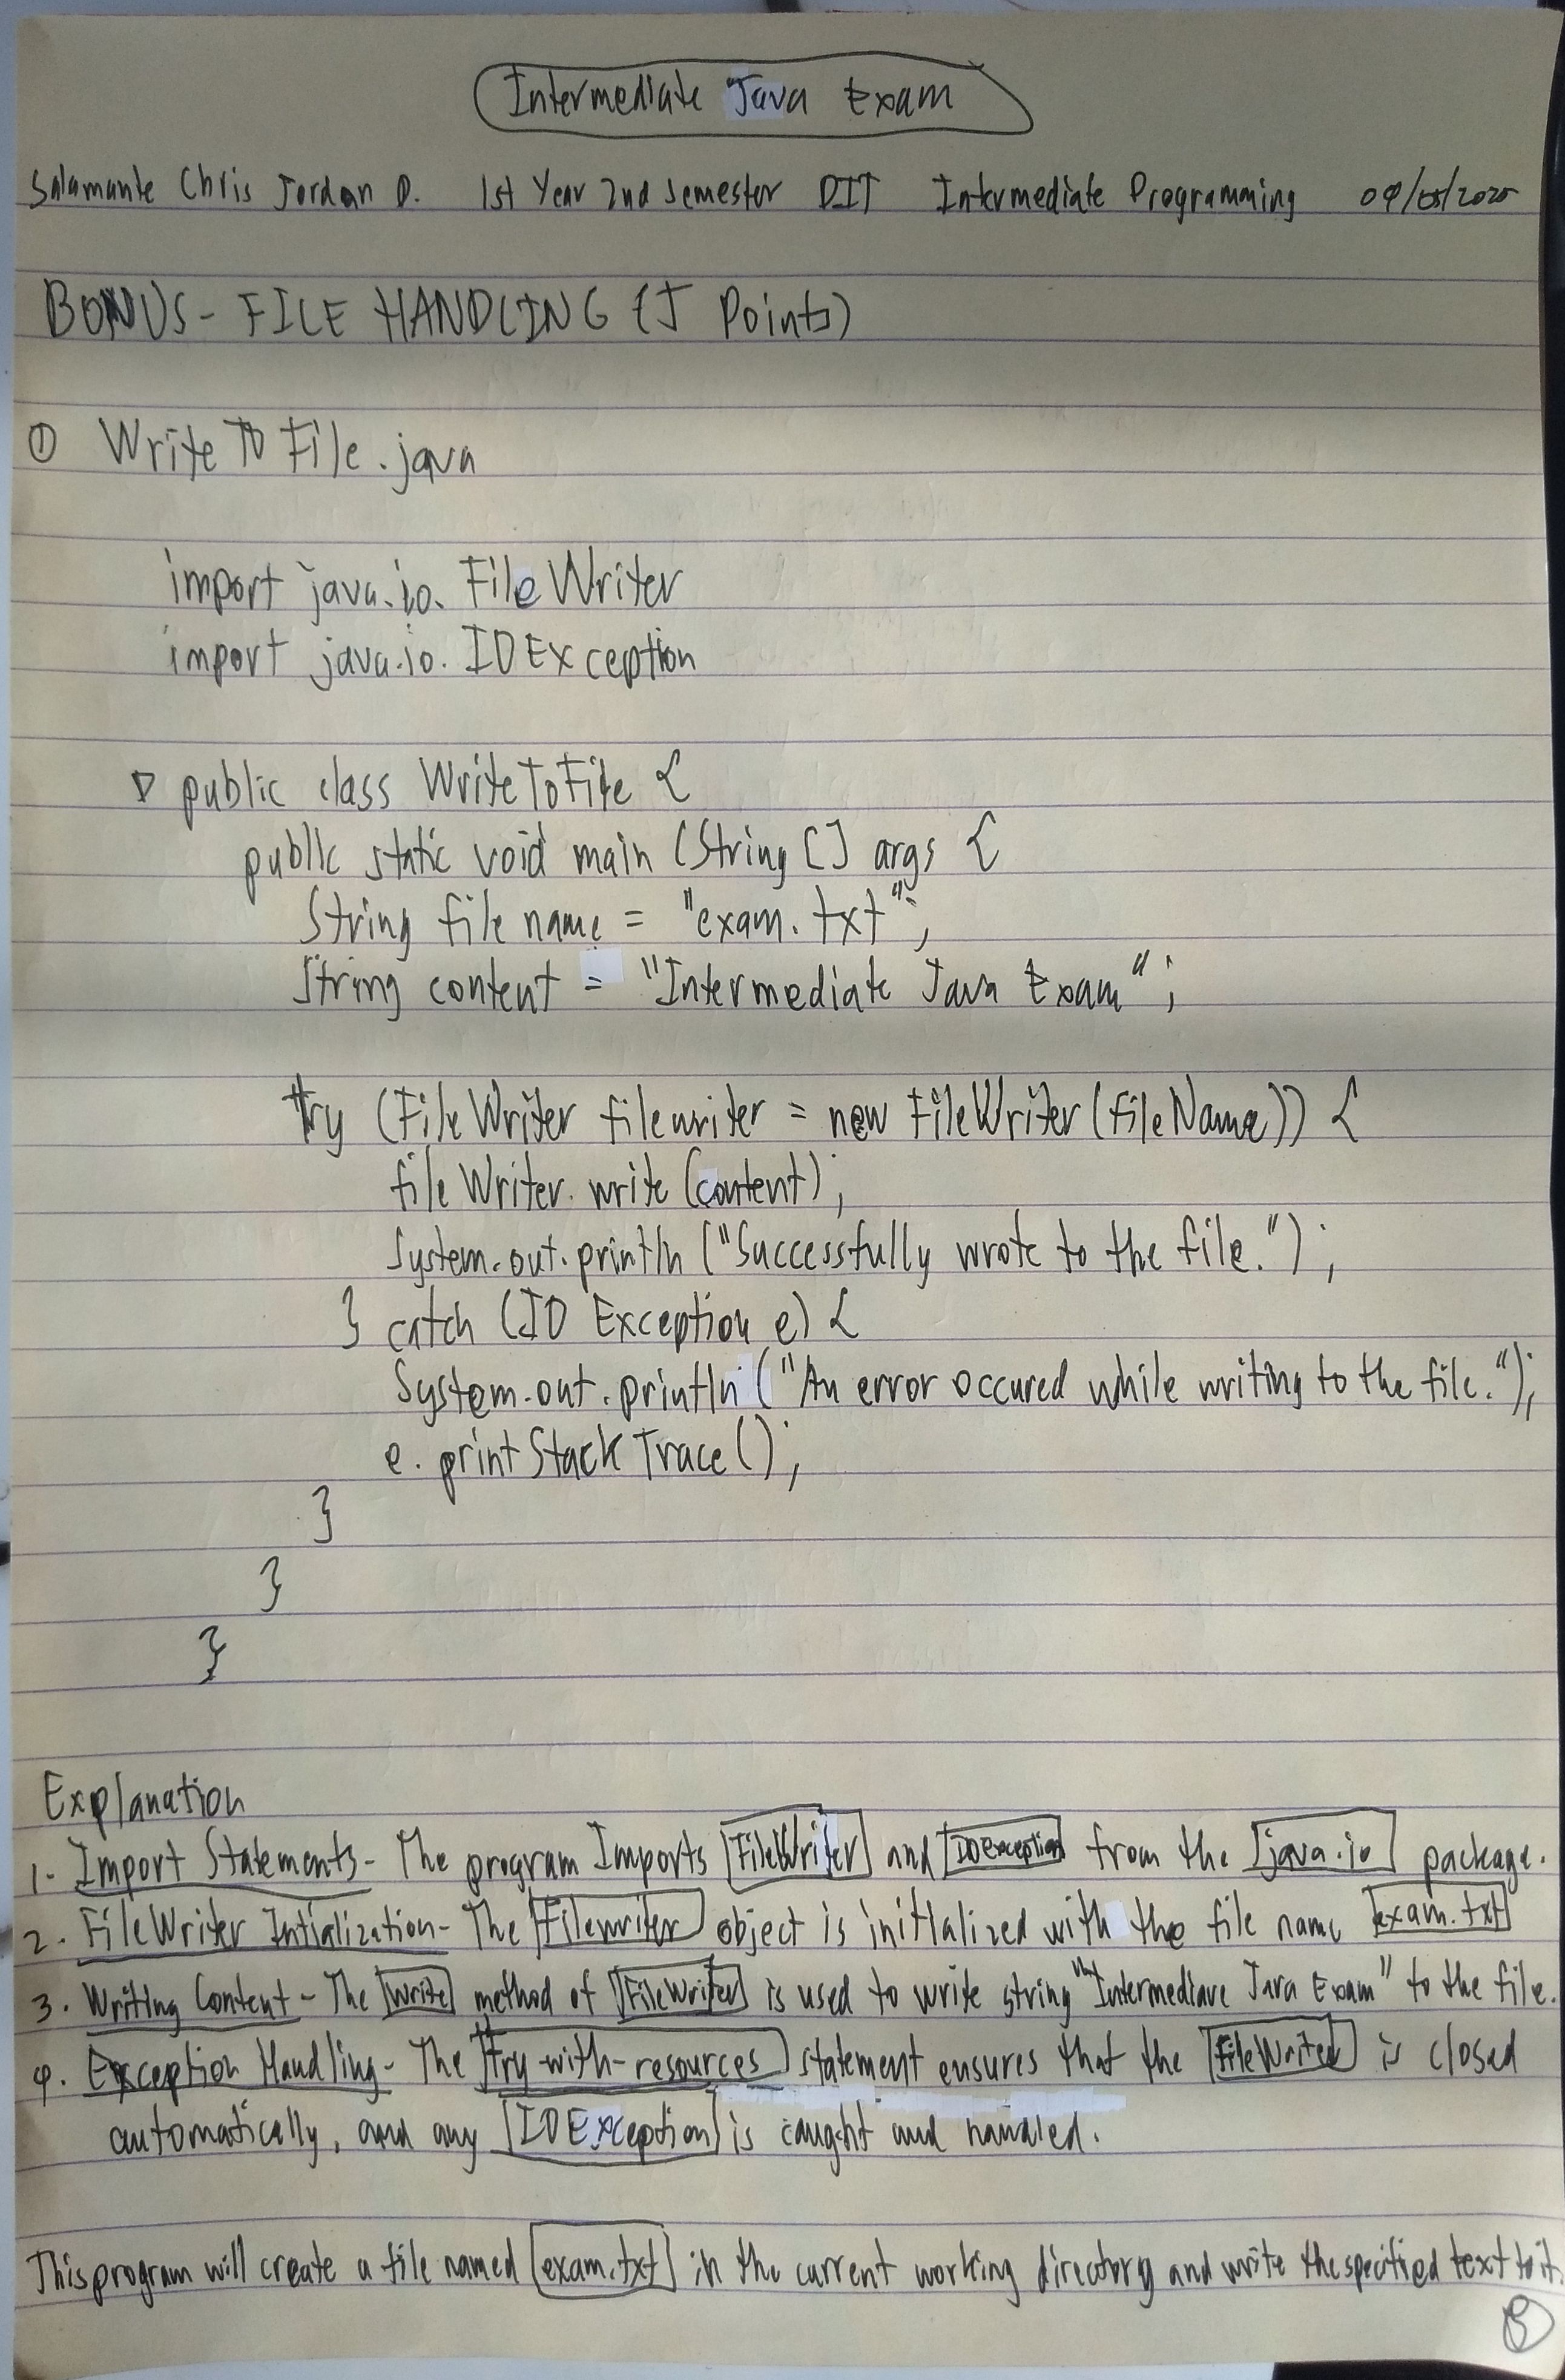 Intermediate Java Exam
Salamante Chris Jordan D. 1st Year 2nd Semester DIT Intermediate Programming
BONUS - FILE HANDLING (5 Points)
① WriteToFile.java
import java.io.FileWriter
import java.io.IOException
public class WriteToFile {
public static void main (String [] args {
String file name = "exam.txt";
String content = "Intermediate Java Exam";
try (FileWriter filewriter = new FileWriter(fileName)) {
fileWriter.write(content);
System.out.println ("Successfully wrote to the file.");
} catch (IO Exception e) {
System.out.println ("An error occured while writing to the file.");
e.printStackTrace();
}
}
}
Explanation
1. Import Statements - The program Imports FileWriter and IOException from the java.io package.
2. FileWriter Intialization - The Filewriter object is initialized with the file name exam.txt
3. Writing Content - The Write method of FileWriter is used to write string "Intermediave Java Exam" to the file.
4. Exception Handling - The try-with-resources statement ensures that the FileWriter is closed
automatically, and any IOException is caught and handled.
This program will create a file named exam.txt in the current working directory and write the specified text to it.